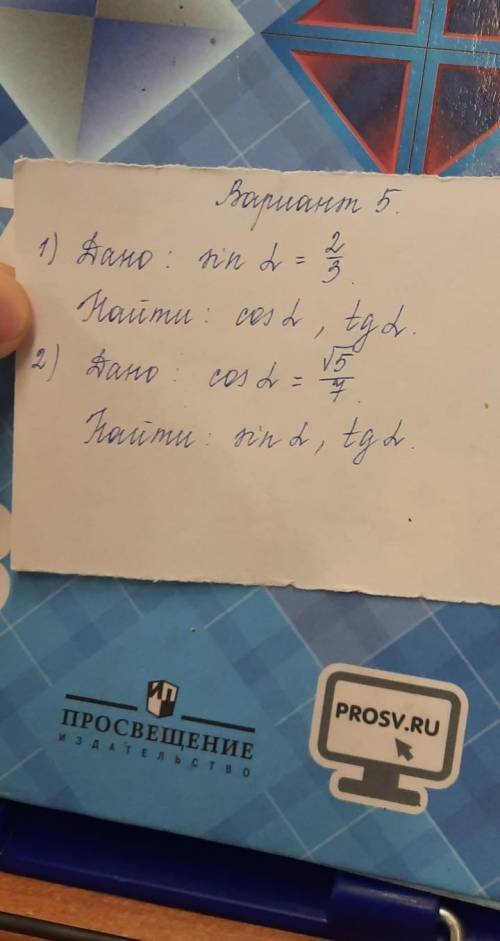 Вариант 5.
1) Дано: sin α = 2/3.
Найти: cos α, tg α.
2) Дано: cos α = √5/7.
Найти: sin α, tg α.
ПРОСВЕЩЕНИЕ
ИЗДАТЕЛЬСТВО
PROSV.RU